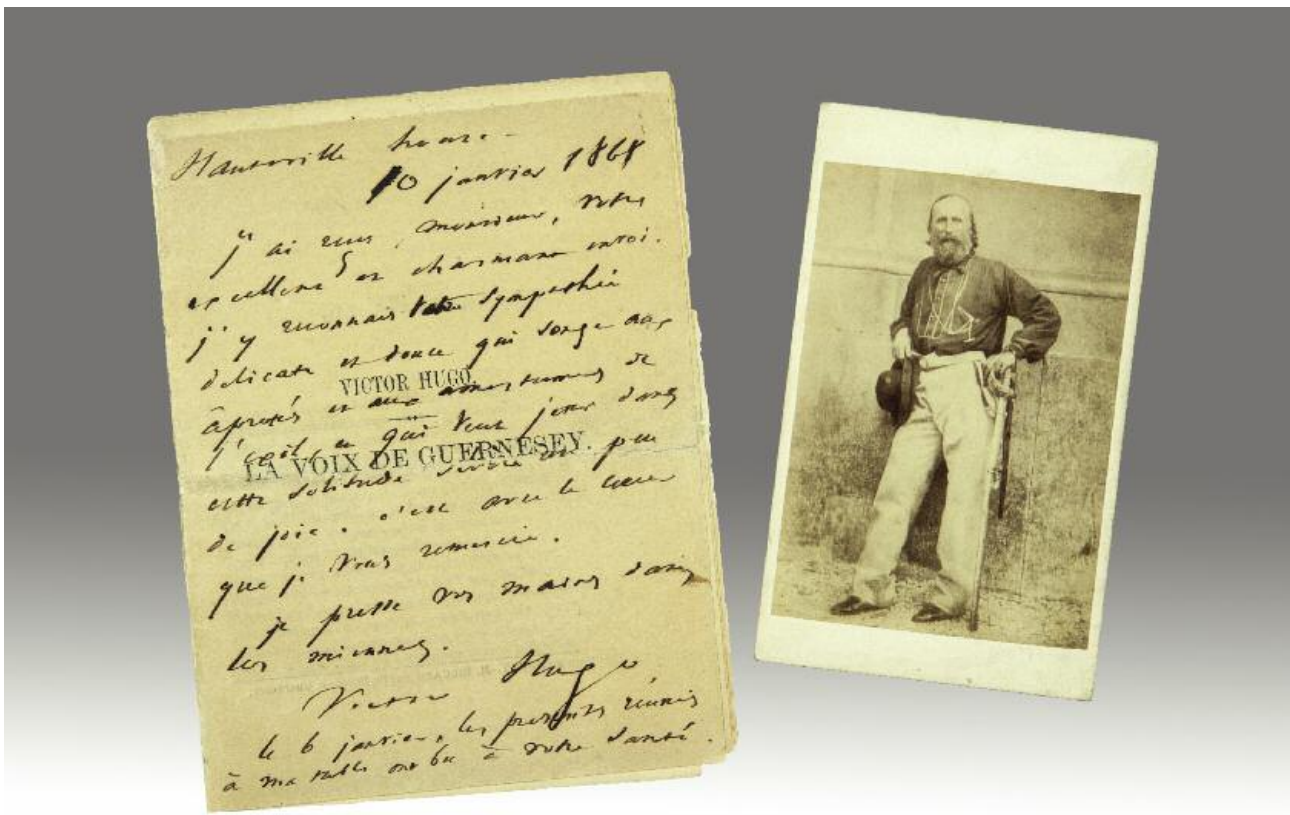 Hauteville house –
10 janvier 1868
j'ai reçu, monsieur, votre
excellent et charmant envoi.
j'y reconnais votre sympathie
délicate et douce qui songe aux
VICTOR HUGO.
âpretés et aux amertumes de
l'exil, et qui veut jeter dans
LA VOIX DE GUERNESEY.
cette solitude un peu
de joie. c'est avec le cœur
que je vous remercie.
je presse vos mains dans
les miennes.
Victor Hugo
le 6 janvier, les présents réunis
à ma table ont bu à votre santé.